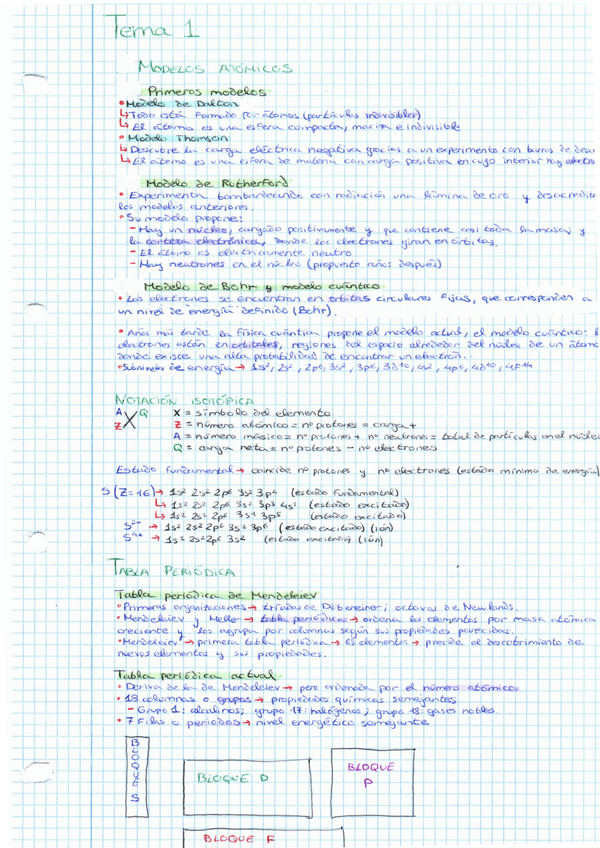 Tema 1
MODELOS ATÓMICOS
Primeros modelos
• Modelo de Dalton
↳ Todo está formado por átomos (partículas indivisibles)
↳ El átomo es una esfera compacta, maciza e indivisible
• Modelo Thomson
↳ Descubre la carga eléctrica negativa gracias a un experimento con tubos de descar
↳ El átomo es una esfera de materia con carga positiva en cuyo interior hay electro
Modelo de Rutherford
• Experimenta bombardeando con radiación una lámina de oro y desacredita
los modelos anteriores.
• Su modelo propone:
- Hay un núcleo, cargado positivamente y que contiene casi toda la masa, y
la corteza electrónica, donde los electrones giran en órbitas.
- El átomo es eléctricamente neutro
- Hay neutrones en el núcleo (propuesto años después)
Modelo de Bohr y modelo cuántico
• Los electrones se encuentran en órbitas circulares fijas, que corresponden a
un nivel de energía definido (Bohr).
• Años más tarde la física cuántica propone el modelo actual, el modelo cuántico: l
electrones están en orbitales, regiones del espacio alrededor del núcleo de un átomo
donde existe una alta probabilidad de encontrar un electrón.
• Subniveles de energía → 1s², 2s², 2p6, 3s², 3p6, 3d10, 4s2, 4p6, 4d10, 4F14
NOTACIÓN ISOTÓPICA
A X Q X = símbolo del elemento
Z Z = número atómico = nº protones = carga +
A = número másico = nº protones + nº neutrones = total de partículas en el núcleo
Q = carga neta = nº protones - nº electrones
Estado fundamental → coincide nº protones y nº electrones (estado mínimo de energía)
S (Z=16) → 1s² 2s² 2p6 3s² 3p4 (estado fundamental)
↳ 1s² 2s² 2p6 3s² 3p3 4s1 (estado excitado)
↳ 1s² 2s² 2p6 3s1 3p5 (estado excitado)
S2- → 1s² 2s² 2p6 3s² 3p6 (estado excitado) (ión)
S4+ → 1s² 2s² 2p6 3s² (estado excitado) (ión)
TABLA PERIÓDICA
Tabla periódica de Mendeleiev
• Primeras organizaciones → tríadas de Döbereiner; octavas de Newlands.
• Mendeleiev y Meller → tabla periódica → ordena los elementos por masa atómica
creciente y los agrupa por columnas según sus propiedades parecidas.
• Mendeleiev → primera tabla periódica → 63 elementos → predice el descubrimiento de
nuevos elementos y sus propiedades.
Tabla periódica actual
• Deriva de la de Mendeleiev → pero ordenada por el número atómico
• 18 columnas o grupos → propiedades químicas semejantes
- Grupo 1: alcalinos; grupo 17: halógenos; grupo 18: gases nobles.
• 7 Filas o periodos → nivel energético semejante
BLOQUE S
BLOQUE D
BLOQUE P
BLOQUE F